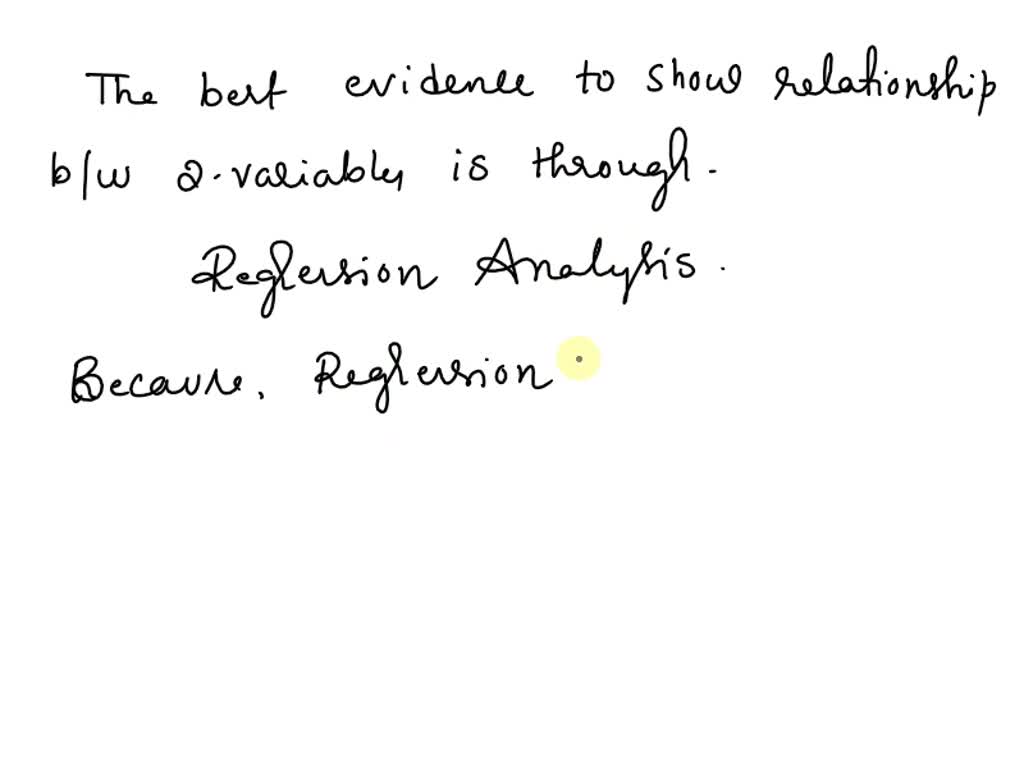 The best evidence to show relationship
b/w 2.variables is through.
Regression Analysis.
Because. Regression